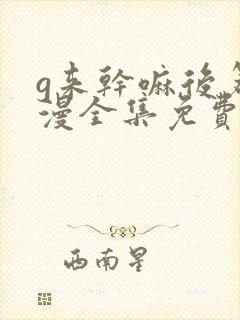 g来幹嘛後
漫全集免費
西南星